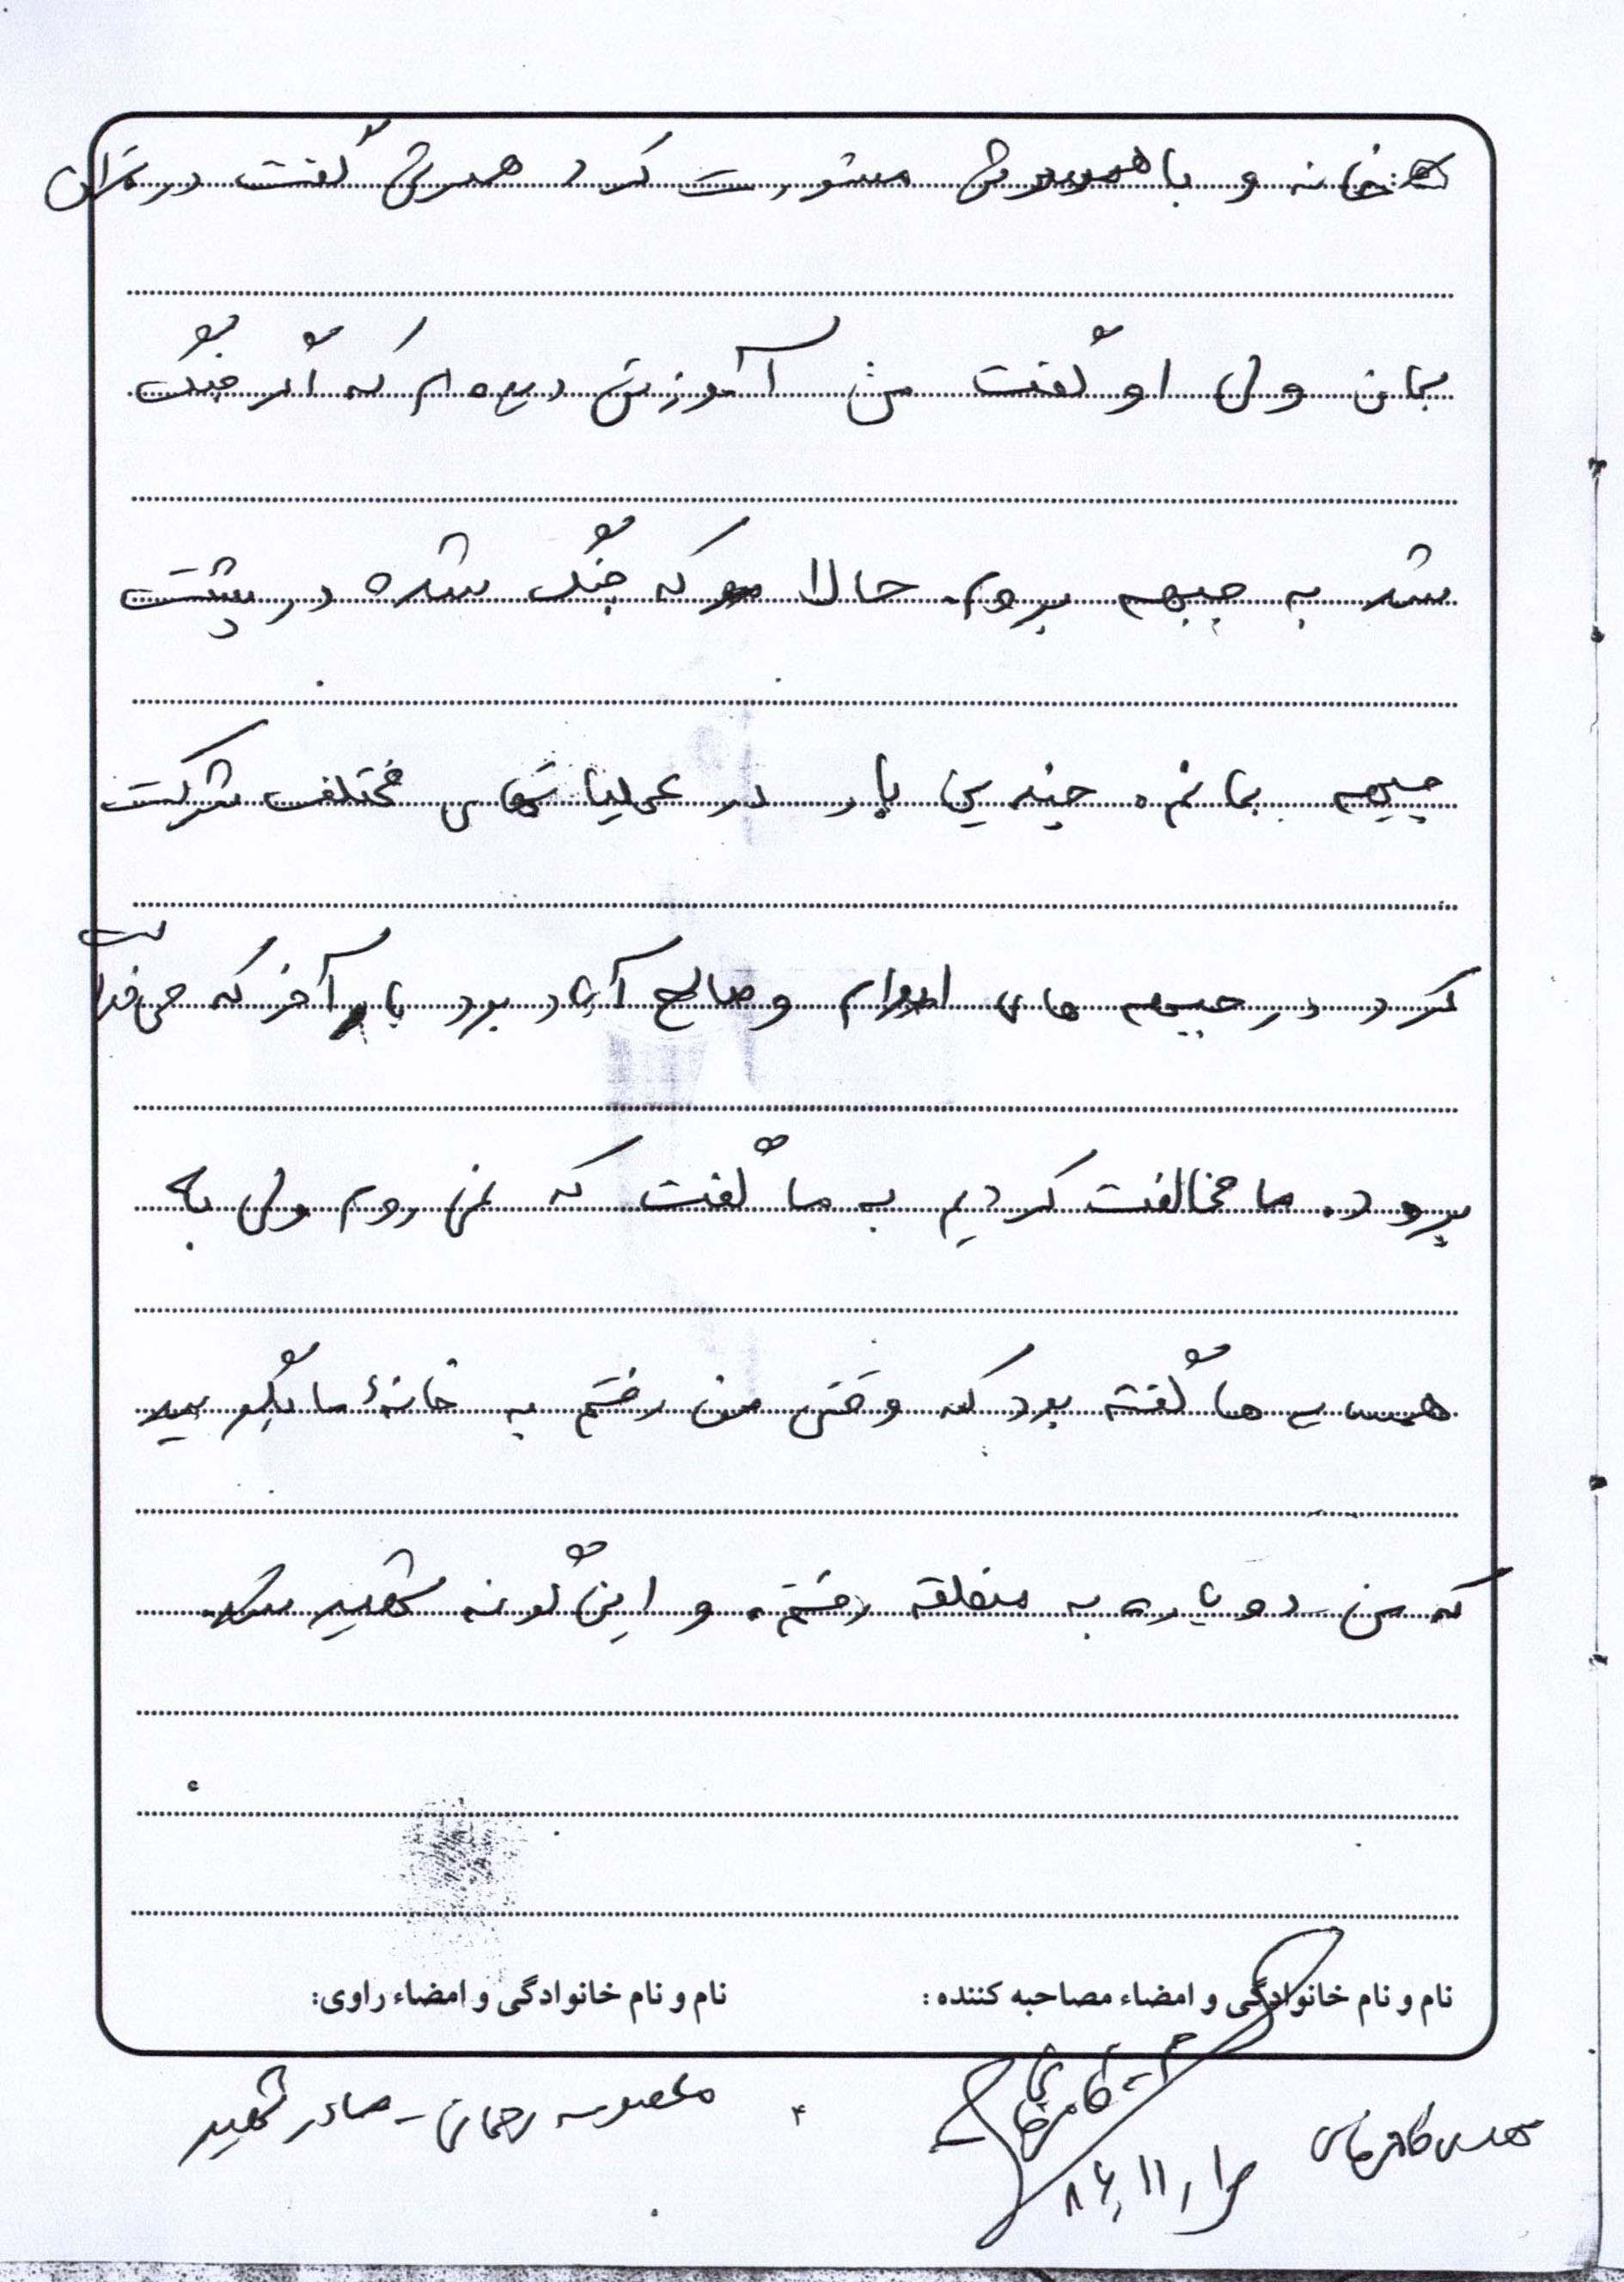 خانه و با همسرش مشورت کرد همسرش گفت در تهران
بمان ولی او گفت من آموزش دیده ام که اگر جنگ
شد به جبهه بروم. حالا که جنگ شده در پشت
جبهه بمانم. چندین بار در عملیاتهای مختلف شرکت
کرد در جبهه های ایلام و صالح آباد بود بار آخر که می خواست
برود. ما مخالفت کردیم به ما گفت که نمی روم ولی به
همسایه ها گفته بود که وقتی من رفتم به خانهٔ ما بگویید
که من دوباره به منطقه رفتم. و این گونه شهید شد.
نام و نام خانوادگی و امضاء مصاحبه کننده :
نام و نام خانوادگی و امضاء راوی:
معصومه رحمانی - مادر شهید
۸۶٫۱۱٫